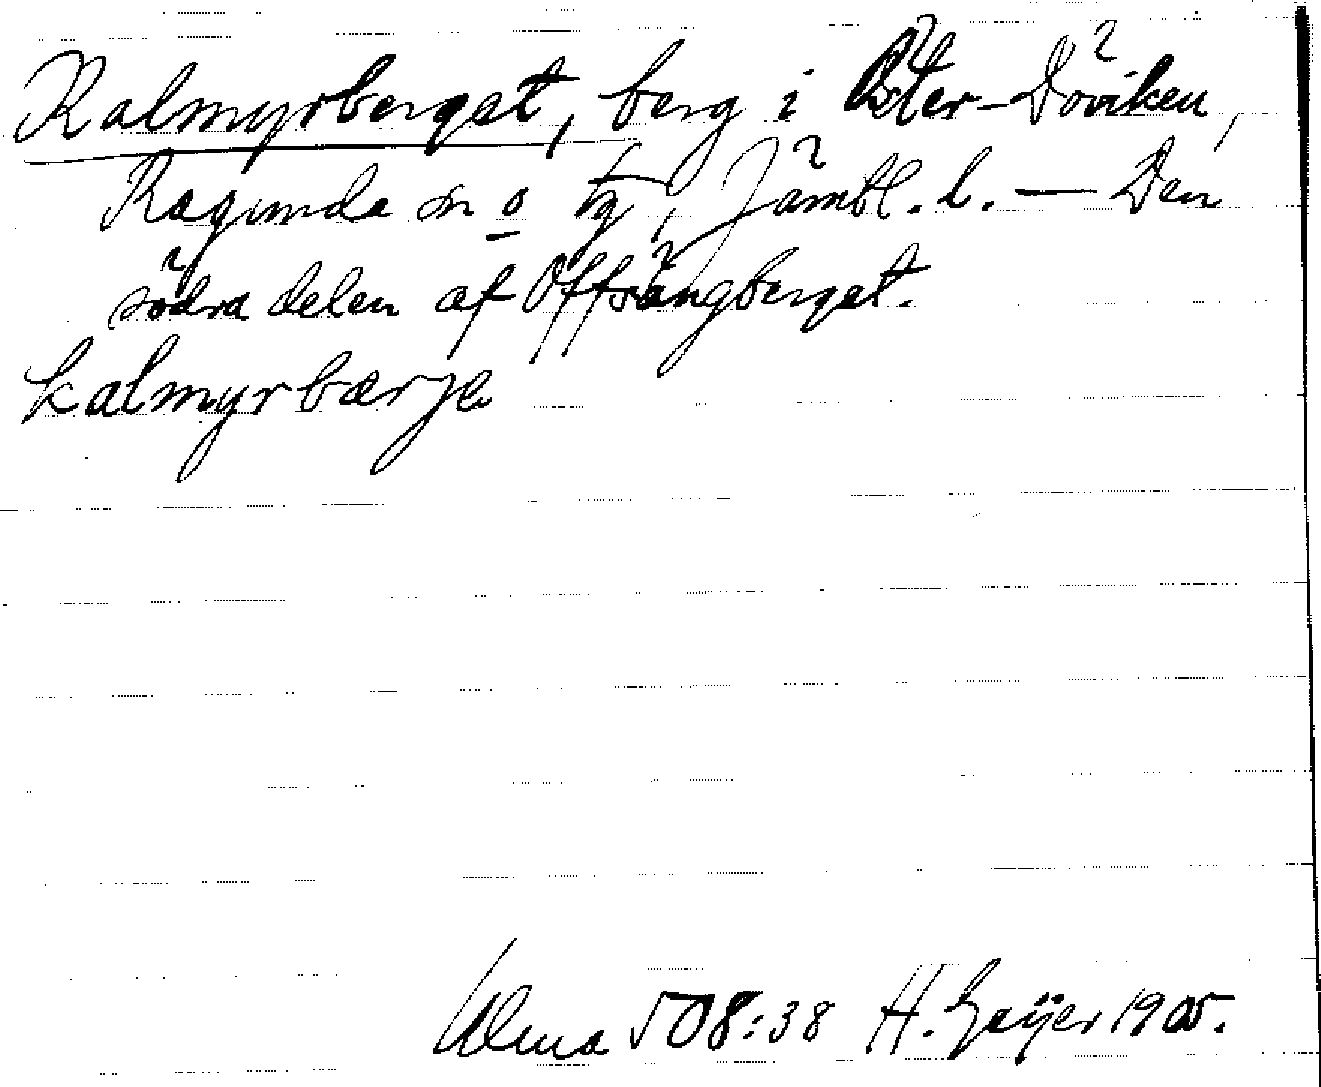 Kalmyrberget, berg i Öster-Döviken,
Ragunda sn o tg, Jämtl. l. — Den
södra delen af Offsångberget.
kalmyrbærje
Ulma 508:38 H. Geijer 1905.